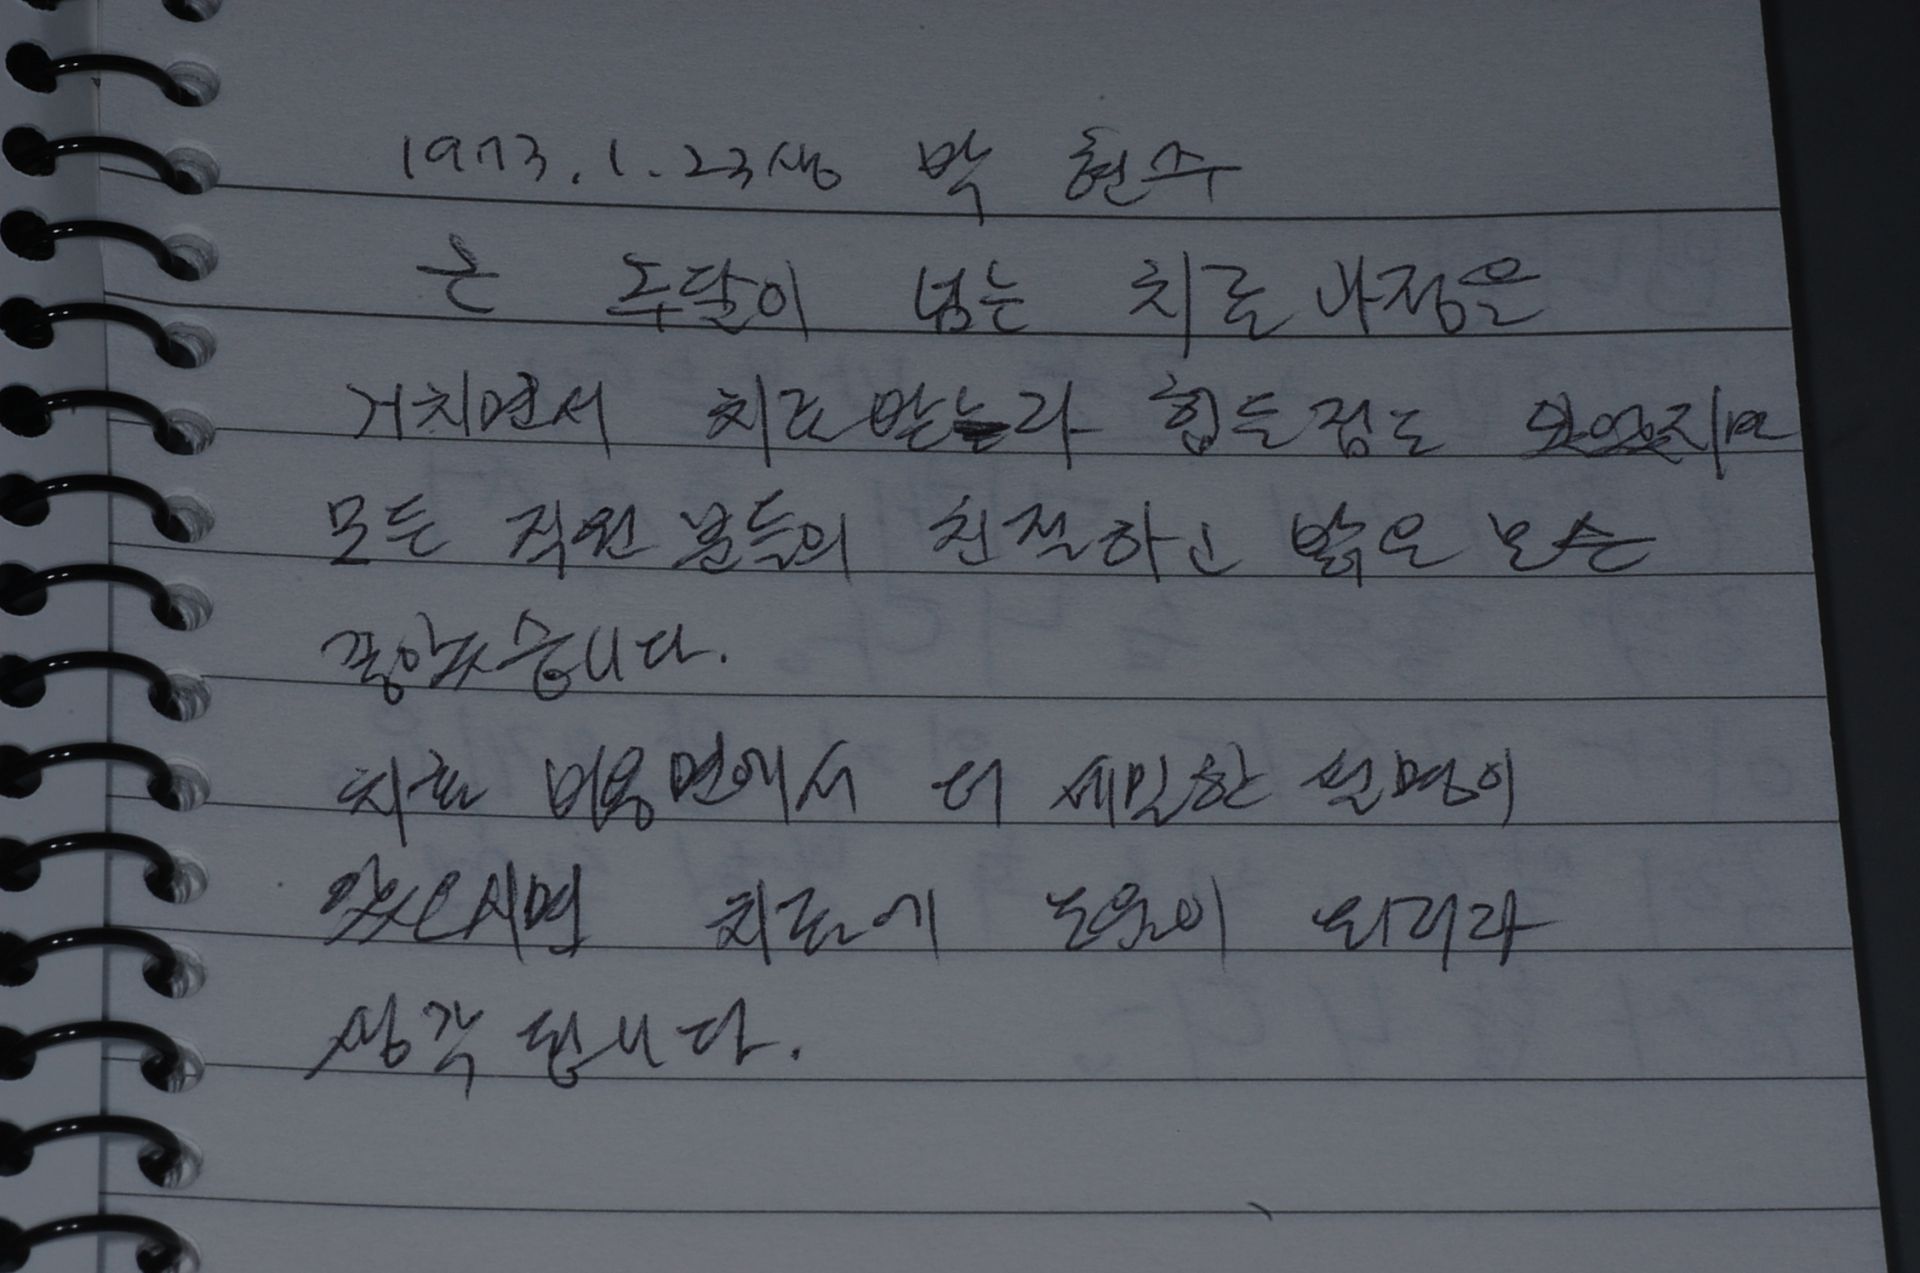 1973.1.23생 박 현수
근 두달이 넘는 치료 과정을
거치면서 치료받느라 힘든점도 있었지만
모든 직원분들의 친절하고 밝은 모습은
좋았습니다.
치료 비용면에서 더 세밀한 설명이
있으시면 치료에 도움이 되리라
생각 됩니다.